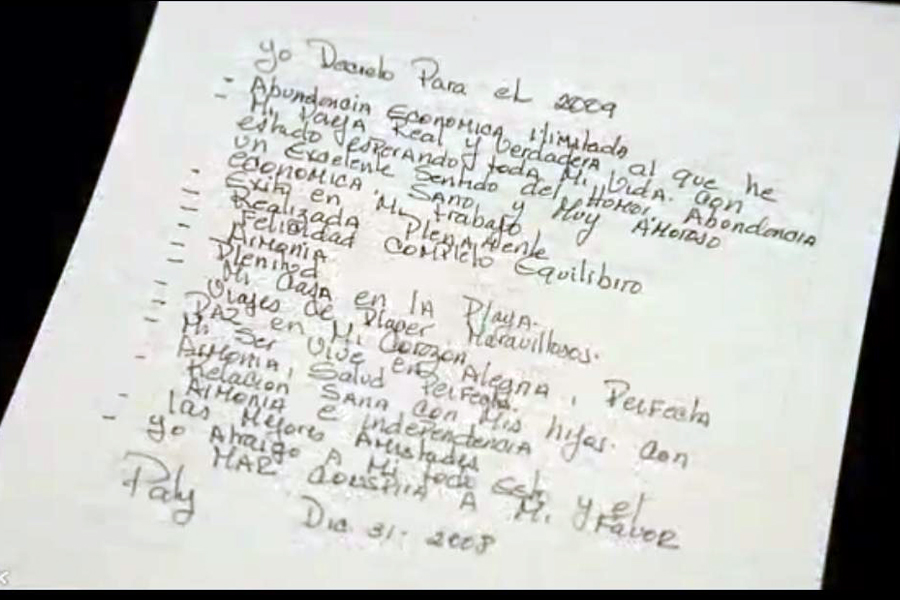 Yo Decreto Para el 2009
- Abundancia Economica Ilimitada
- Mi Pareja Real y Verdadera al que he
estado esperando toda Mi Vida. Con
un Exelente Sentido del Humor. Abondancia
economica, Sano y Muy Amoroso
- Exito en Mi trabajo
- Realizada Plenamente
- Felicidad Completo Equilibiro
- Armonia
- Plenitud
- Mi Casa en la Playa.
- Viajes de Placer Maravillosos.
- Paz en Mi Corazon
- Mi Ser Vive en Alegria, Perfecta
Armonia, Salud Perfecta.
- Relacion Sana con Mis hijas. Con
Armonia e Independencia
- Las Mejores Amistades
- Yo Atraigo A Mi todo esto y el
MAR Conspira A Mi Favor
Paty
Dic. 31. 2008